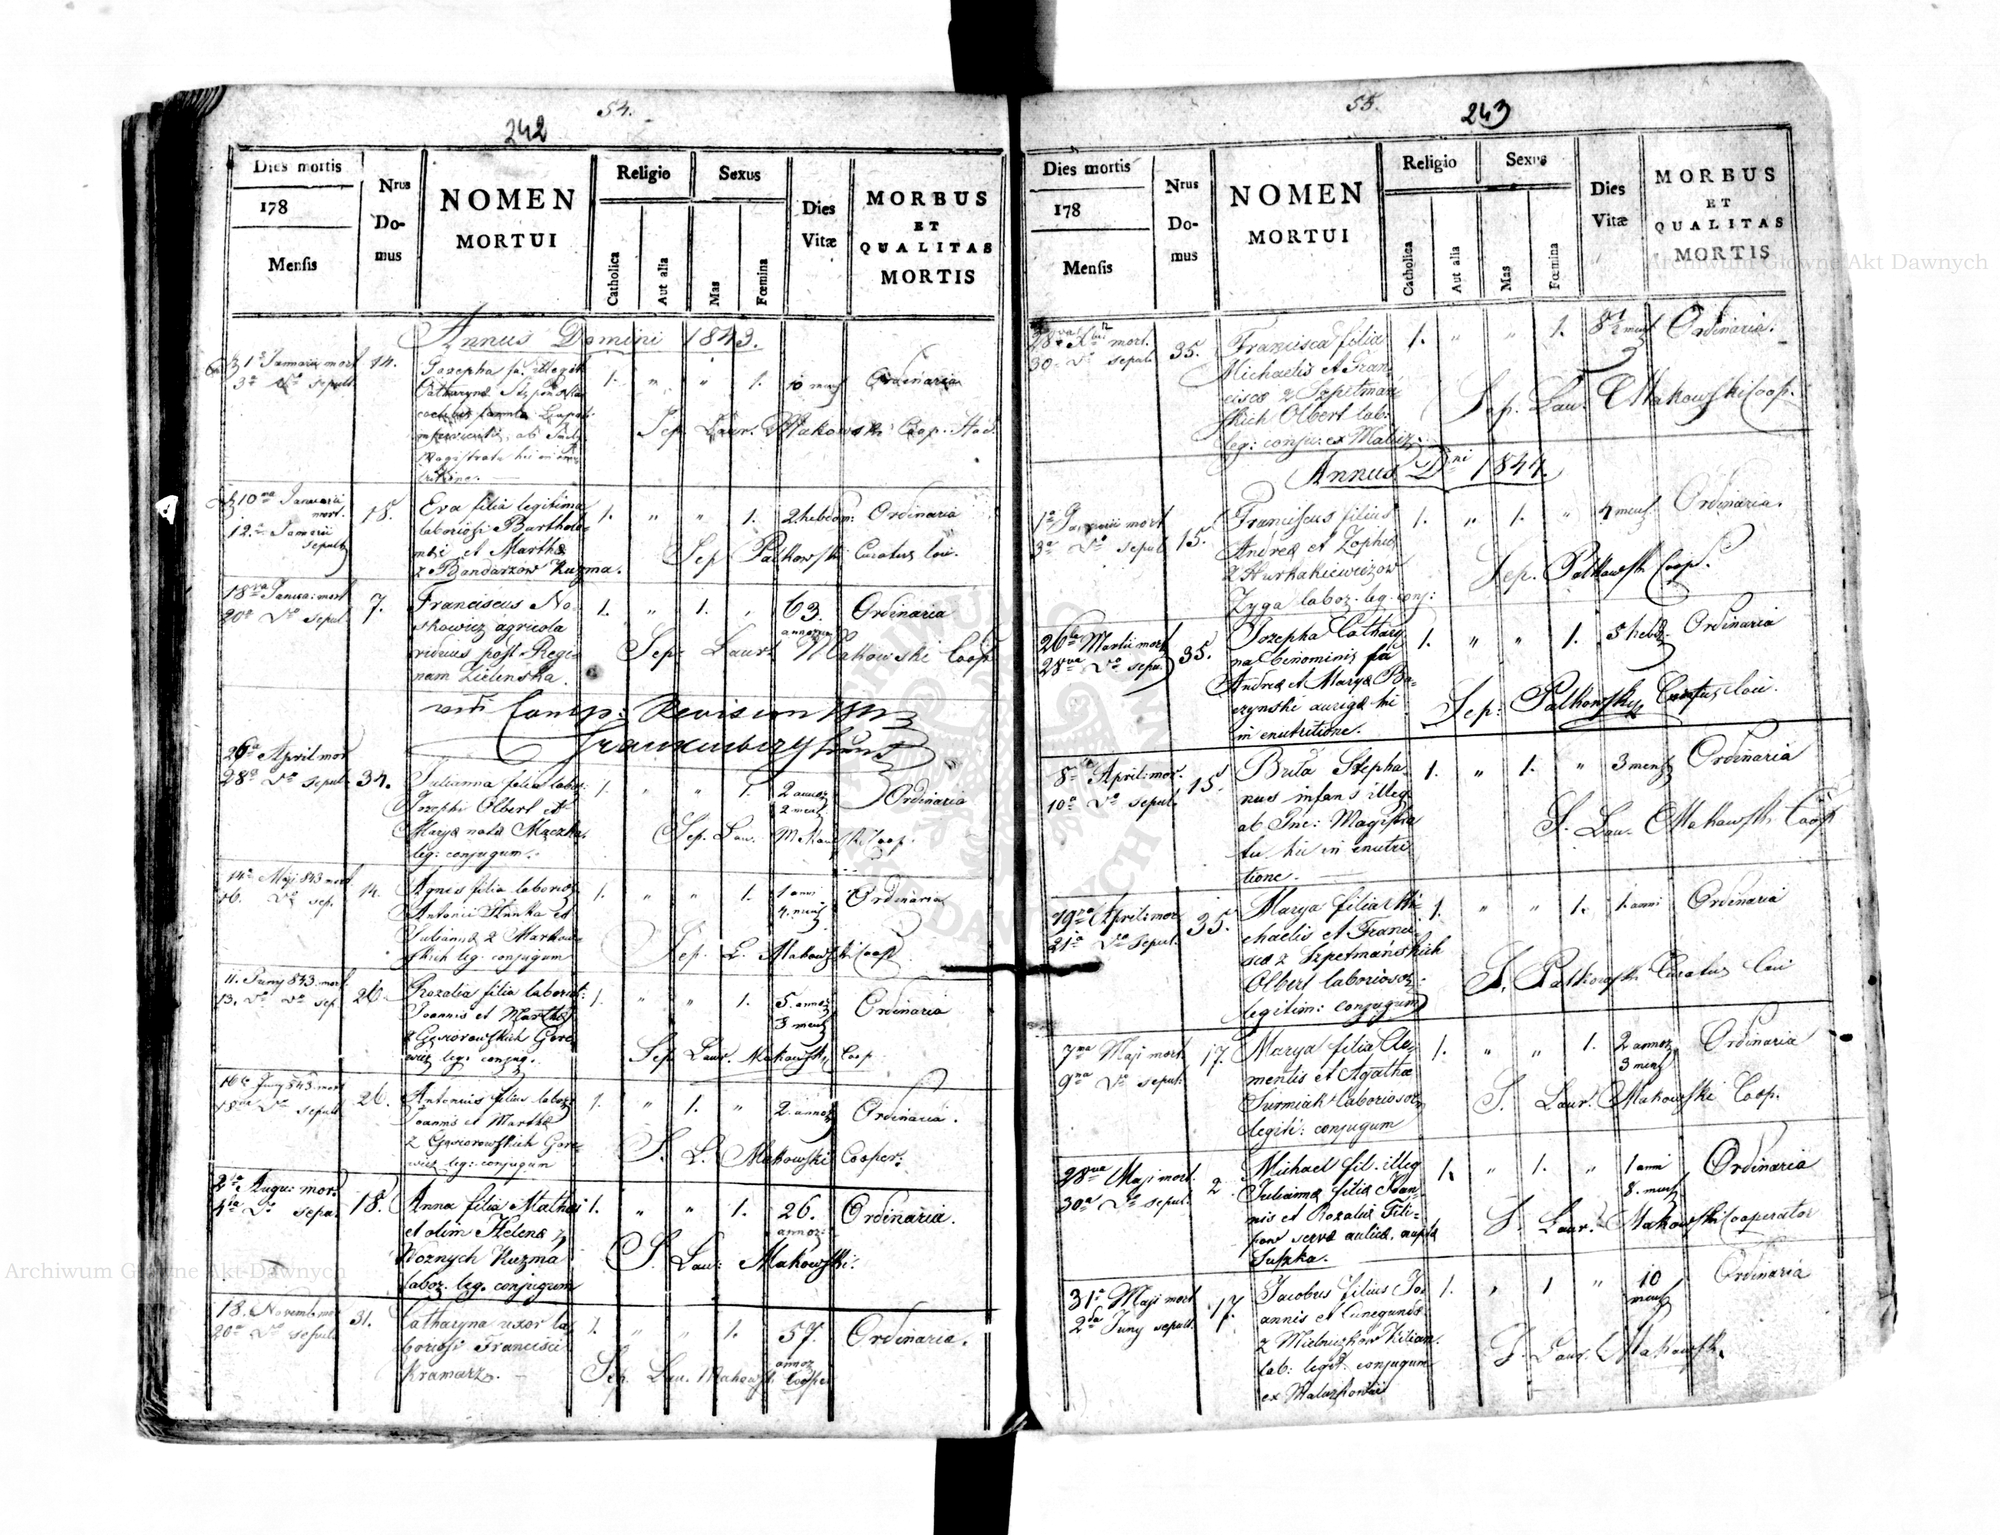 54.
242
Dies mortis
178
Mensis
Nrus Do-
mus
NOMEN
MORTUI
Religio
Catholica
Aut alia
Sexus
Mas
Fœmina
Dies
Vitæ
MORBUS
ET
QUALITAS
MORTIS
Annus Domini 1843.
1a Januarii mort
3a do sepult
14.
Josepha fa: illegit
Catharynæ
Magistratu hic in enu
tritione.
1. " " 1.
10 mens
Ordinaria
Sep. Laur. Makowski Coop.
10ma Januarii
mort.
12a Januarii
sepult
15.
Eva filia legitima
laboriosi Bartholo-
mæi et Marthæ
z Bandarzow Kuzma.
1. " " 1.
2 hebdom:
Ordinaria
Sep Patkowski Curatus loci.
18va Janua: mort
20a do sepul
7.
Franciscus No-
skowicz agricola
viduus post Regi-
nam Zielenska.
1. " 1. "
63.
annorum
Ordinaria
Sep: Laur. Makowski Coop.
26a April: mor
28a do sepul.
34.
Julianna filia labo:
Josephi Olbert et
Marya nata Mączka
leg: conjugum.
1. " " 1.
2 annor
2 mens
Ordinaria
Sep. Lau. Makowski Coop.
14a Maji 843 mort
16. do sep.
14.
Agnes filia laborios
Antonii Stanka et
Juliannæ z Markow-
skich leg. conjugum
1. " " 1.
1 anni
4. mens
Ordinaria
Sep. L. Makowski Coop
11. Juny 843. mort
13. do do sep
26.
Rozalia filia laborios:
Joannis et Marthæ
z Gąsiorowskich Gore-
wicz leg: conjug.
1. " " 1.
5. annor
3 mens
Ordinaria
Sep. Laur. Makowski Coop
16a Juny 843. mort
18va do sepult
26.
Antonius filius labor
Joannis et Marthæ
z Gąsiorowskich Gore-
wicz leg: conjugum
1. " 1. "
2. annor
Ordinaria.
S. L. Makowski Cooper:
2da Augu: mort
4ta do sepu.
18.
Anna filia Mathæi
et olim Helenæ z
Woznych Kuzma
laboz. leg. conjugum
1. " " 1.
26.
annor:
Ordinaria.
S. Lau: Makowski.
18. Novemb. mo
20a do sepult
31.
Catharyna uxor la-
boriosi Francisci
Kramarz.
1. " " 1.
57.
annor
Ordinaria.
Sep. Lau. Makowsk. Cooper
55.
243
Dies mortis
178
Mensis
Nrus
Do-
mus
NOMEN
MORTUI
Religio
Catholica
Aut alia
Sexus
Mas
Fœmina
Dies
Vitæ
MORBUS
ET
QUALITAS
MORTIS
mort.
30. do sepul
35.
Francisca filia
Michaelis et Fran-
ciscæ z Szpetmań
skich Olbert lab:
leg: conju: ex Malis:
1. " " 1.
8½ mens
Ordinaria.
Sep. Lau. Makowski Coop.
Annus Dni 1844.
1a Januarii mort
3a do sepul
15.
Franciscus filius
Andreæ et Zophiæ
z Hurkakiewiczow
Zyga laboz. leg. conj:
1. " 1. "
4 mens
Ordinaria.
Sep. Patkowsk Coop.
26ta Martii mort
28va do sepu.
35.
Jozepha Cathary-
na binominis fa
Andreæ et Maryæ Bo-
czynski aurigæ hic
in enutritione.
1. " " 1.
5 hebd.
Ordinaria
Sep: Patkowski Curatus loci.
8a April: mor.
10a do sepul.
15.
Buła Stepha-
nus infans illeg
ab Inc: Magistra
tu hic in enutri
tione.
1. " 1. "
3 mens
Ordinaria
S. Lau. Makowsk. Coop
19na April: mor
21a do sepul.
35.
Marya filia Mi-
chaelis et Franci-
scæ z Szpetmańskich
Olbert laboriosor
legitim: conjugum
1. " " 1.
1. anni
Ordinaria
S. Patkowsk. Curatus loci
7ma Maji mort.
9na do sepul:
17.
Marya filia Cle-
mentis et Agathæ
Surmiak laboriosor
legiti: conjugum
1. " " 1.
2 annor
3 mens
Ordinaria
S. Laur. Makowski Coop.
28va Maji mort.
30a do sepul.
2.
Michael fil. illeg
Juliannæ filiæ Joan-
nis et Rozaliæ Fili-
pow servæ aulicæ, nuptæ
Suszka.
1. " 1. "
1 anni
8. mens
Ordinaria
S. Laur. Makowski Cooperator
31a Maji mort
2da Juny sepult.
17.
Jacobus filius Jo-
annis et Cunegundæ
z Mielniczkow Kilian.
lab. legit. conjugum
1. " 1 "
10
mens
Ordinaria
S. Laur. Makowsk.
Archiwum Główne Akt Dawnych
Archiwum Główne Akt Dawnych